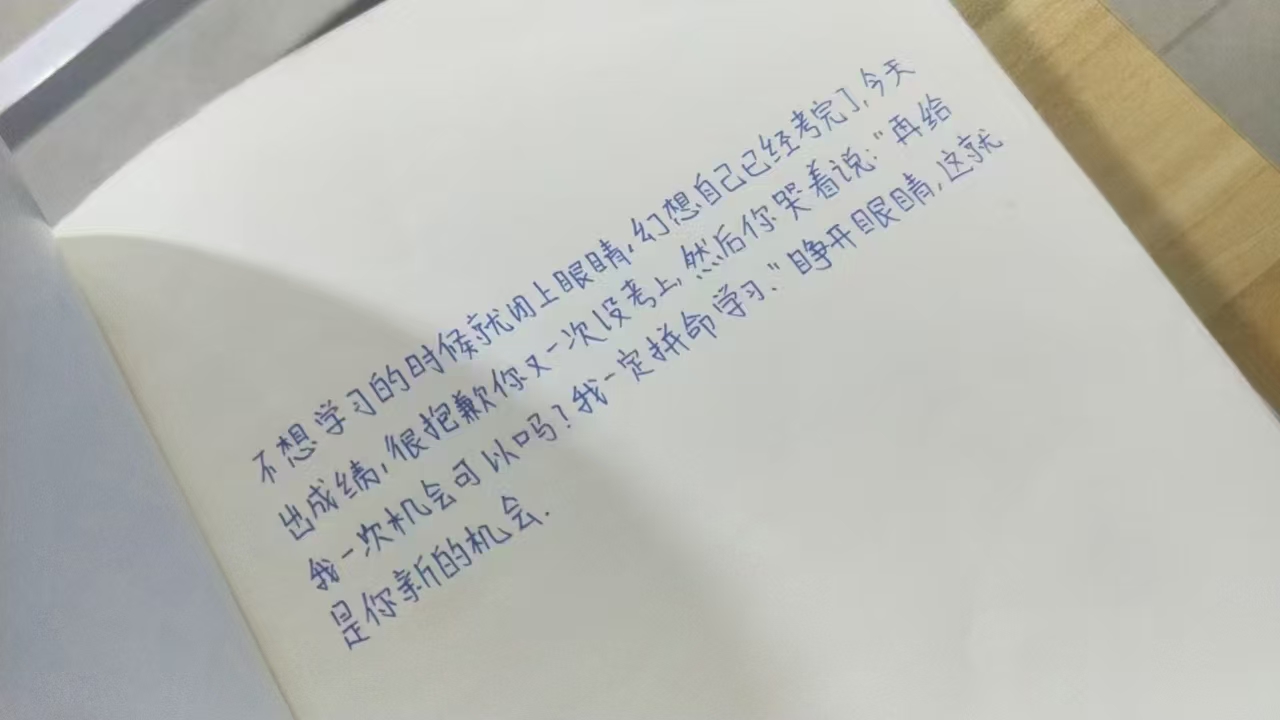 不想学习的时候就闭上眼睛,幻想自己已经考完了,今天
出成绩,很抱歉你又一次没考上,然后你哭着说:“再给
我一次机会可以吗?我一定拼命学习.”睁开眼睛,这就
是你新的机会.